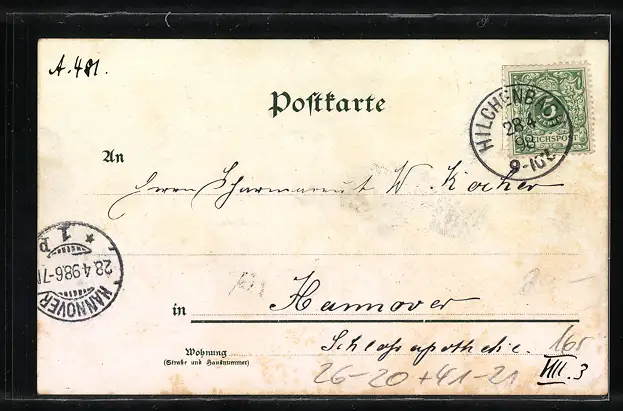 A. 481.
Postkarte
HILCHENB
28 4
98
9-10V
5
REICHSPOST
An
Herrn Pharmaceut W. Kocher
HANNOVER
28.4.98.6-7N
* 1 p
in Hannover
Schlossapotheke.
Wohnung
(Straße und Hausnummer)
165
26-20+41-21
VIII. 3